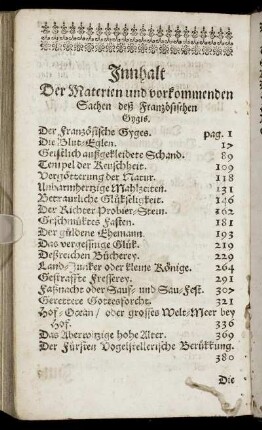 Innhalt
Der Materien und vorkommenden
Sachen deß Frantzösischen
Gygis.
Der Frantzösische Gyges. pag. 1
Die Blut-Eglen. 17
Geistlich außgekleidete Schand. 89
Tempel der Keuschheit. 109
Verzörterung der Natur. 118
Unbarmhertzige Mahlzeiten. 131
Betraurliche Glükseligkeit. 146
Der Richter Probier-Stein. 162
Geschmüktes Fasten. 181
Der güldene Ehemann. 193
Das vergessnige Glük. 219
Deß Bücherey. 229
Land-Junker oder kleine Könige. 264
Gestraffte Fresserey. 291
Faßnacht oder Sauf- und Sau-Fest. 307
Gerettete Gottesforcht. 321
Hof-Ocean / oder grosses Welt-Meer bey
Hof. 336
Das Aberwitzige hohe Alter. 369
Der Fürsten Vogelstellerische Berükung.
380
Die